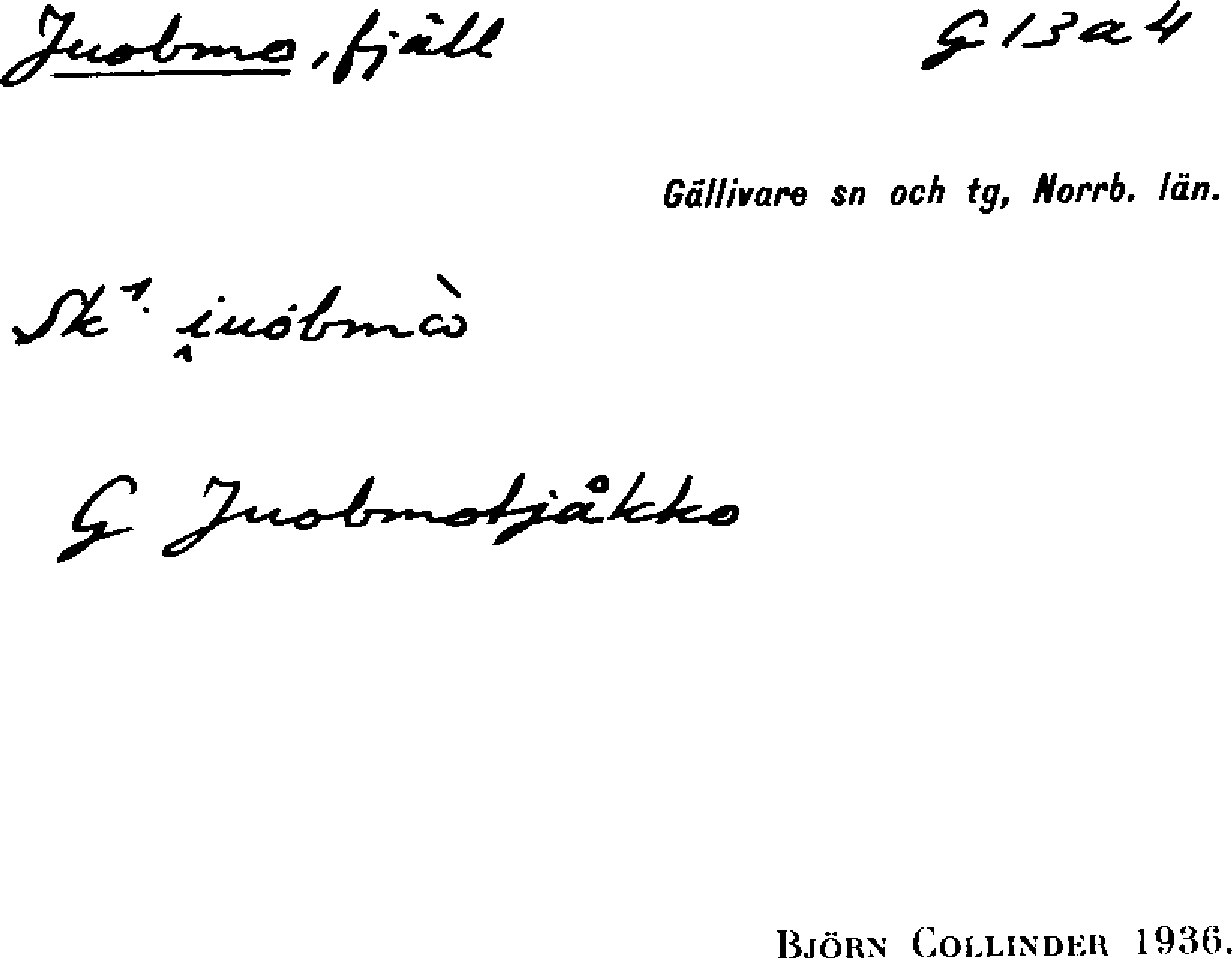 Juobmo, fjäll G 13 a 4
Gällivare sn och tg, Norrb. län.
Sk¹. i̭uȯbmὼ
G Juobmotjåkko
BJÖRN COLLINDER 1936.